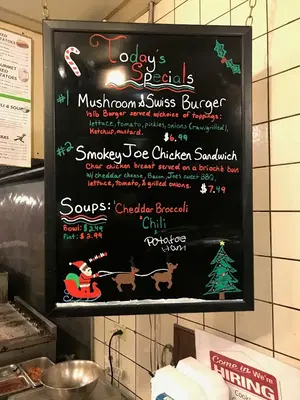 Today's
Specials
#1 Mushroom & Swiss Burger
1/2lb Burger served w/choice of toppings:
lettuce, tomato, pickles, onions (raw/grilled),
Ketchup, mustard.
$6.99
#2 SmokeyJoe Chicken Sandwich
Char chicken breast served on a brioche bun
w/cheddar cheese, Bacon, Joe's sweet BBQ,
lettuce, tomato, & grilled onions. $7.49
Soups: Cheddar Broccoli
Bowl: $2.49 Chili
Pint: $3.99 &
Potatoe
Ham
Come in We're
HIRING